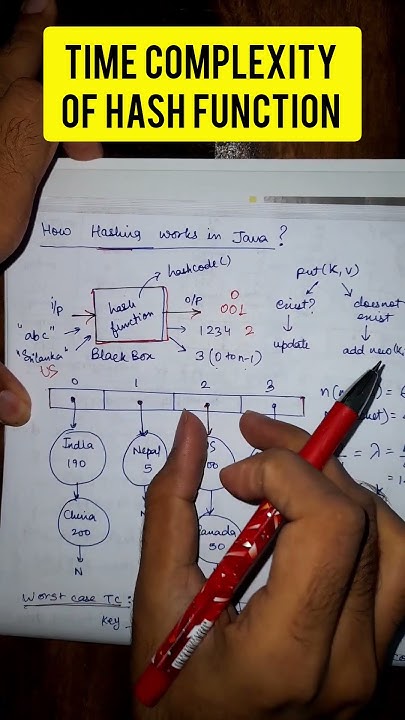 TIME COMPLEXITY
OF HASH FUNCTION
How Hashing works in Java?
hashcode()
put(K,V)
i/p
hash
function
o/p
0
001
1234 2
3 (0 to n-1)
"abc"
"Srilanka"
US
Black Box
exist?
update
does not
exist
add new(K
0 1 2 3
India
190
Nepal
5
China
200
N
Canada
50
λ =
Worst case TC:
Key